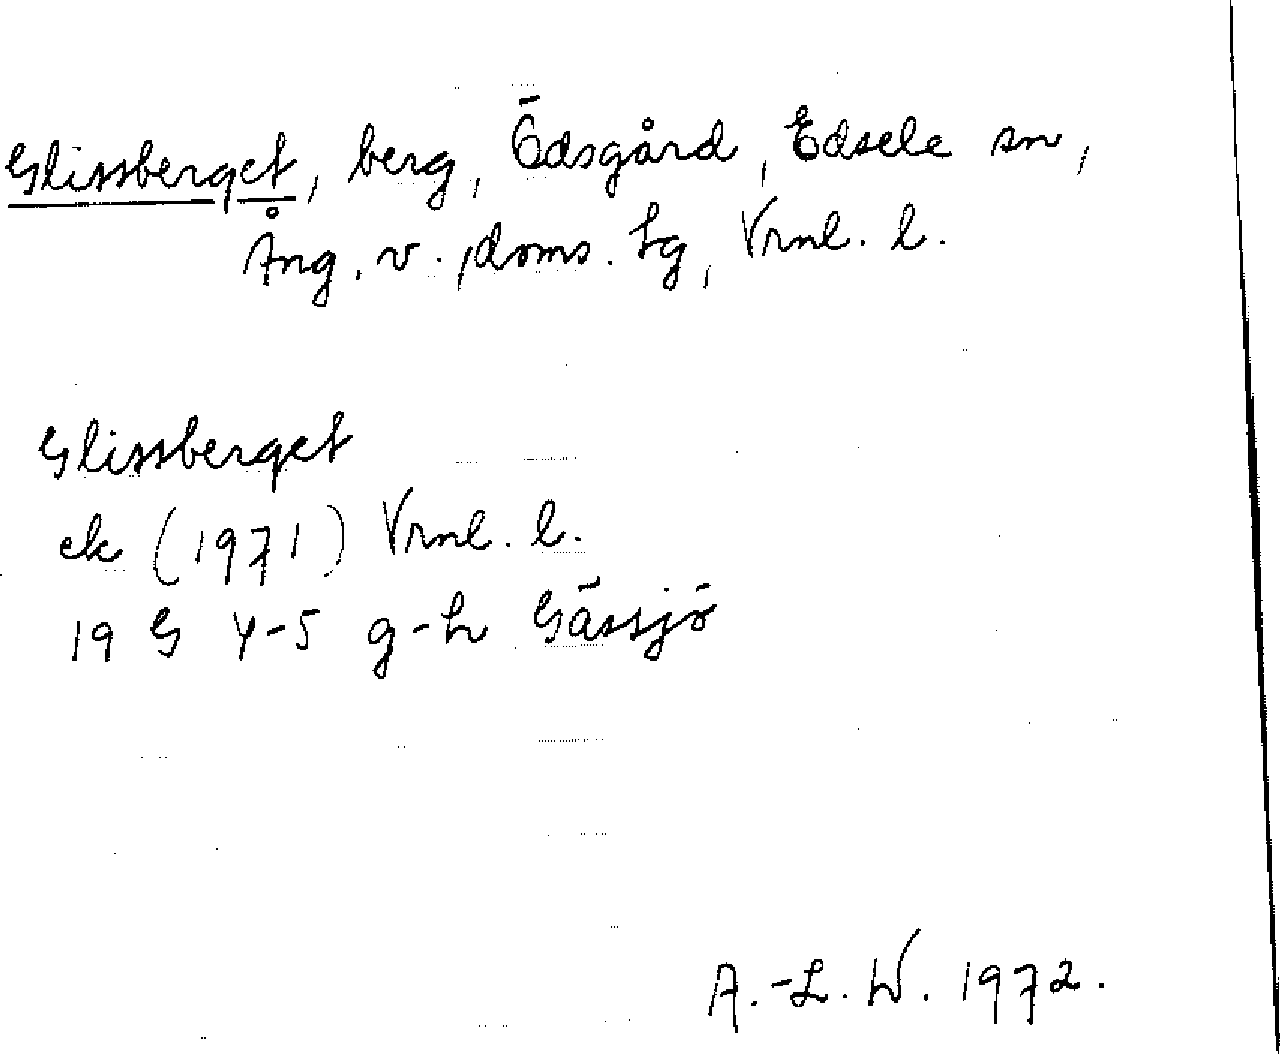 Glissberget, berg, Ödsgård, Edsele sn,
Ång. v. doms. tg, Vrnl. l.
Glissberget
ek (1971) Vrnl. l.
19 G 4-5 g-h Gässjö
A.-L. W. 1972.